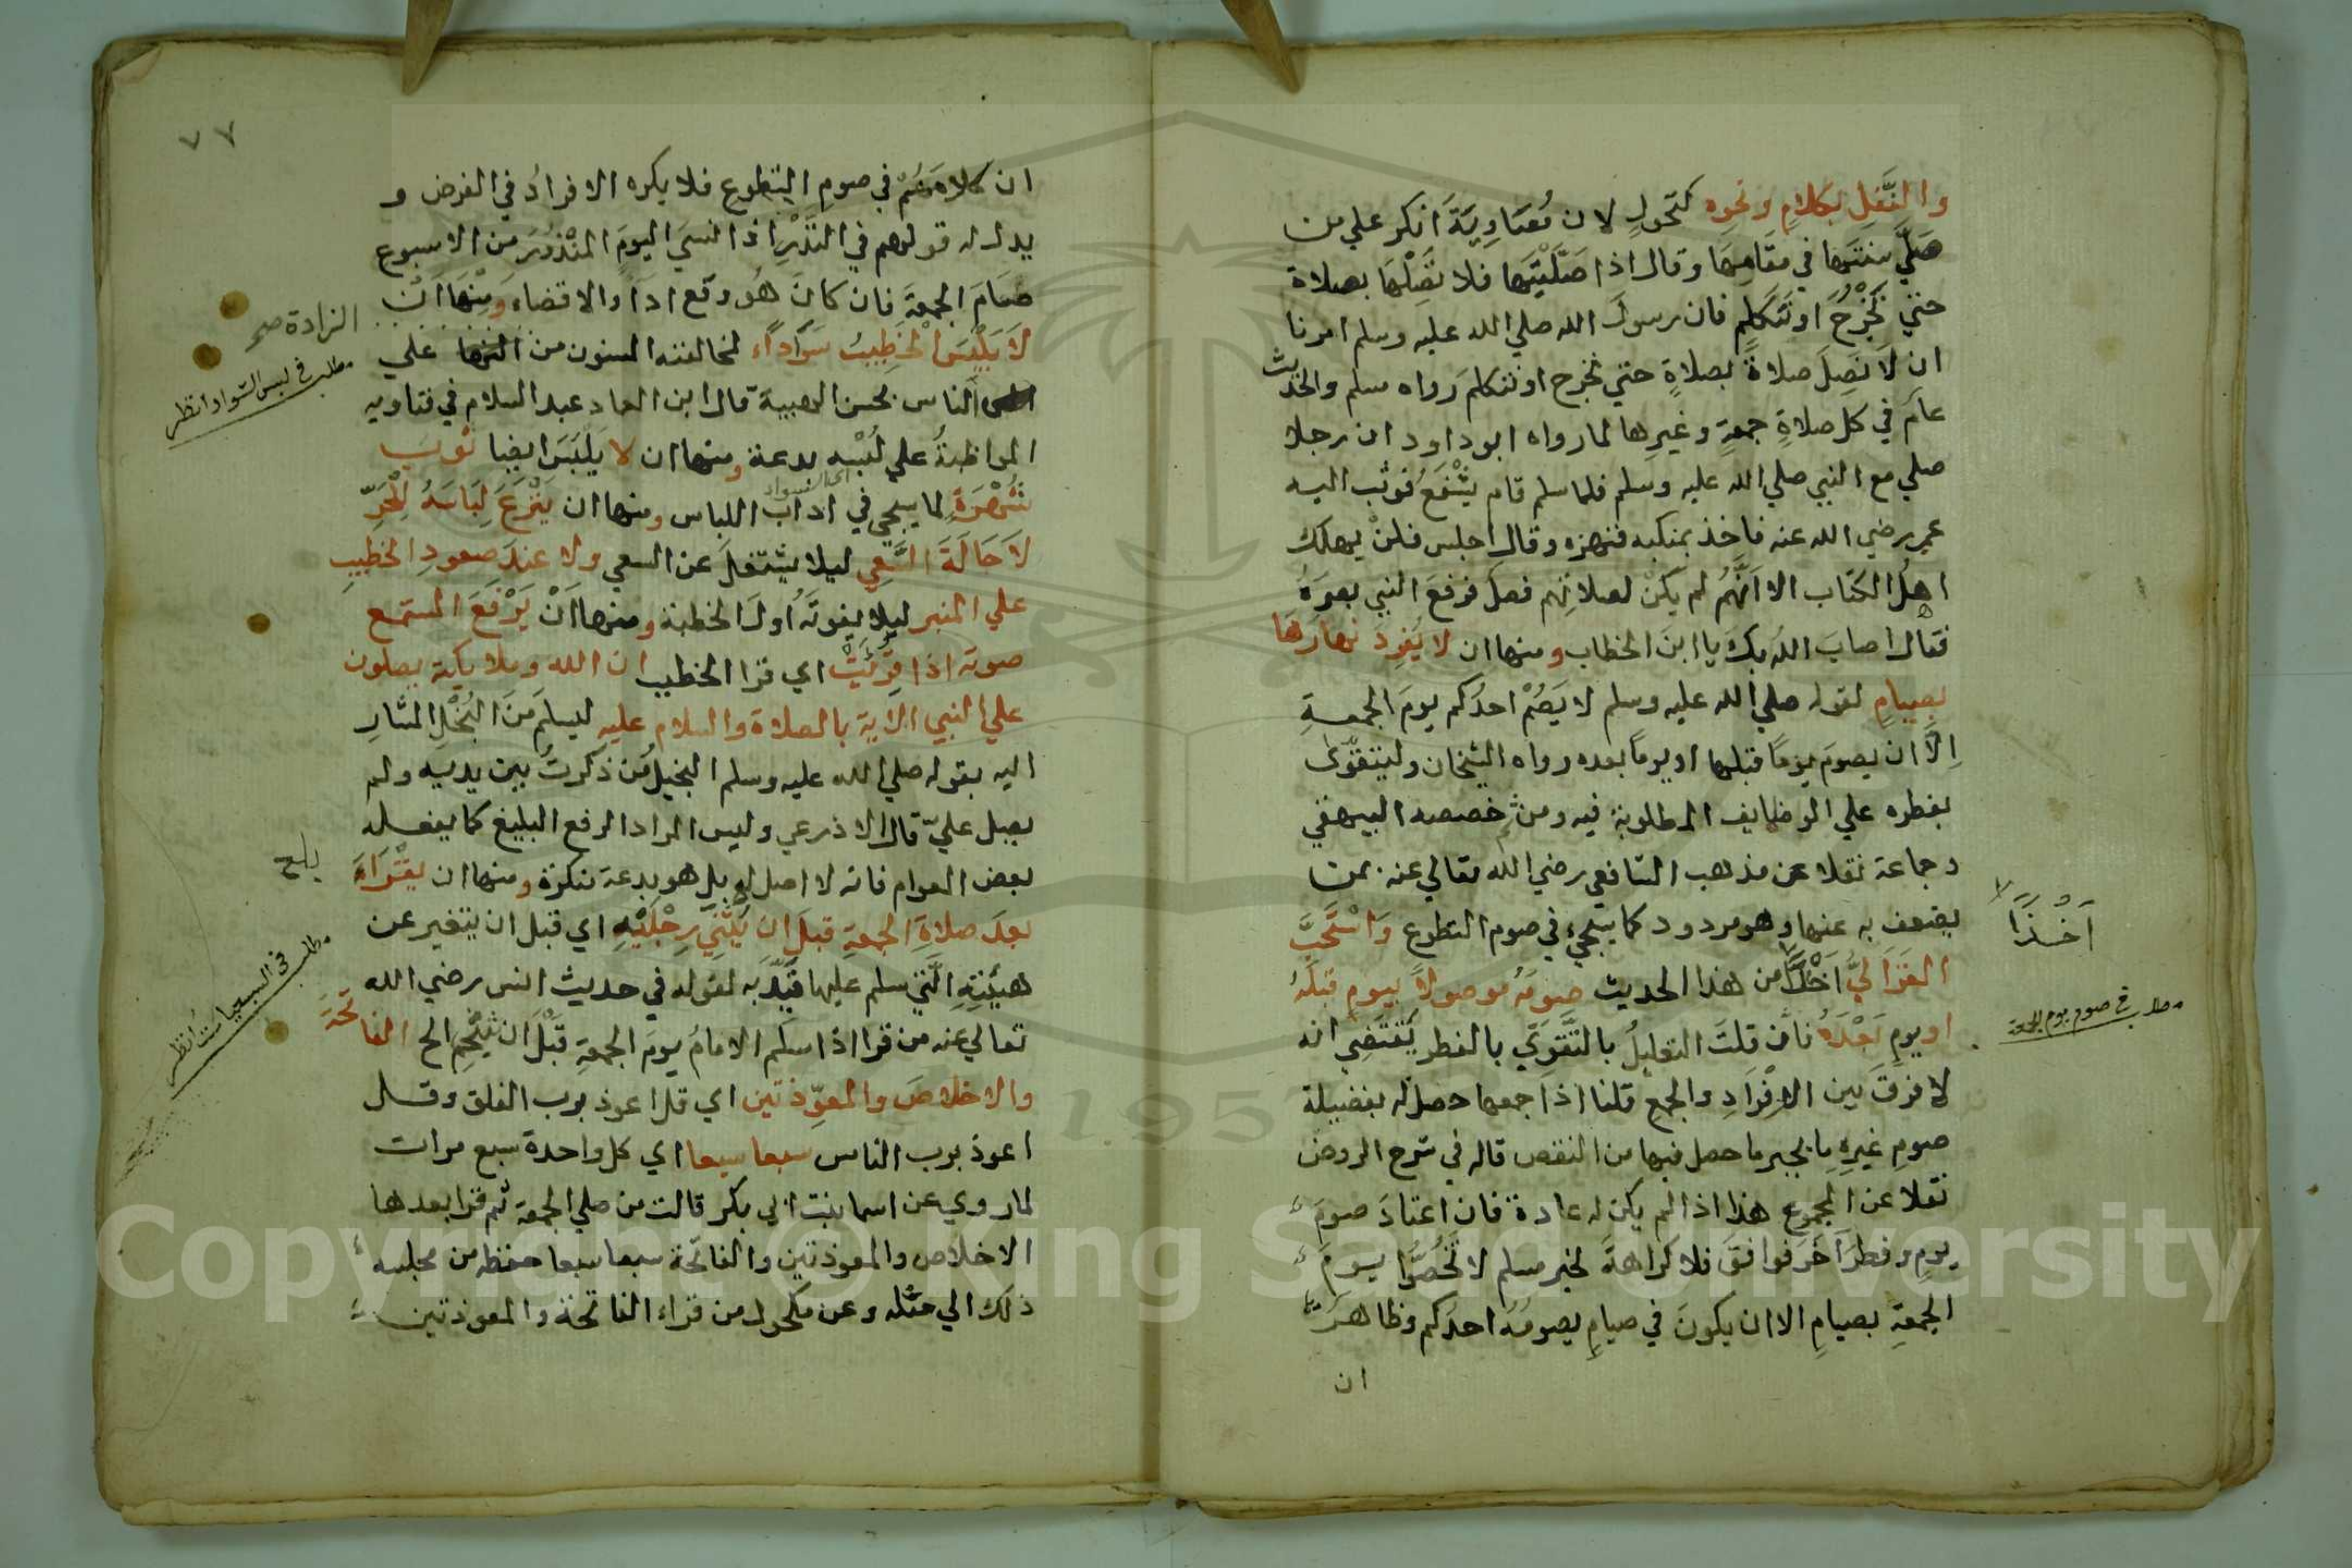 والنَّفْلِ بكلامٍ ونحوِه كتحولٍ لان مُعَاوِيَةَ انكر علي من
صَلَّي سنتَهَا في مقَامِهَا وقال اذا صَلَّيْتَهَا فلا تَصِلْهَا بصلاة
حتي تَخْرُجَ او تَتَكَلم فان رسولَ الله صلي الله عليه وسلم امرنا
ان لا نَصِلَ صلاةً بصلاةٍ حتي نخرج او نتكلمَ رواه مسلم والحديث
عامٌ في كل صلاةِ جمعةٍ وغيرِها لما رواه ابو داود ان رجلا
صلي مع النبي صلي الله عليه وسلم فلما سلم قام يَشْفَعُ فوثب اليه
عمر رضي الله عنه فاخذ بمنكبه فنهزه وقال اجلس فلنْ يهلك
اهلُ الكتاب الا اَنَّهُم لم يكنْ لصلاتِهم فصل فرفعَ النبي بصرَهُ
فقال اصابَ اللهُ بك يا ابنَ الخطاب ومنها ان لا يُفرِدَ نهارَهَا
بصيامٍ لقوله صلي الله عليه وسلم لا يَصُمْ احدُكم يومَ الجمعةِ
اِلَّا ان يصومَ يومًا قبلها او يومًا بعده رواه الشيخان وليتقوّى
بفطره علي الوظايف المطلوبة فيه ومن ثم خصصه البيهقي
وجماعة نقلا عن مذهب الشافعي رضي الله تعالي عنه بمن
يضعف به عنها وهو مردود كما سيجيء في صوم التطوع وَاسْتَحَبَّ
الغَزَاليُّ اَخْذًا من هذا الحديث صومَهُ موصولاً بيومٍ قبلَهُ
او يومٍ بَعْدَهُ فاِن قلتَ التعليلُ بالتَّقَوِّي بالفطر يَقْتَضِي انه
لا فرقَ بين الافْرَادِ والجمع قلنا اذا جمعها حصل له بفضيلة
صومِ غيرِهِ ما يجبر ما حصل فيها من النقص قاله في شرح الروض
نقلا عن المجموع هذا اذا لم يكن له عادة فان اعتادَ صومَ
يومٍ وفطرَ آخَرَ فوافقَ فلا كراهةَ لخبر مسلم لا تَخُصُّوا يومَ
الجمعةِ بصيامٍ الا ان يكونَ في صيامٍ يصومُهُ احدُكم وظاهرُ
ان
اَخْذًا
مطلب في صوم يوم الجمعة
٧٧
ان كلامَهُمْ في صومِ التطوع فلا يكره الافرادُ في الفرض و
يدل له قولهم في النَّذْرِ اذا نسيَ اليومَ المنْذُورَ من الاسبوع
صَامَ الجمعةَ فان كانَ هُو وقَع اداً والا قضاء وَمِنْهَا انْ
لا يَلْبَسَ الخطِيبُ سَوَاداً لمخالفته المسنون من علي
الناس بحسن الهيبة قال ابن العماد عبد السلام في فتاويه
المواظبةُ علي لُبْسِه بدعة ومنها ان لا يَلْبَسَ ايضا ثوبَ
اي السواد
شُهْرَةٍ لما سيجي في اداب اللباس ومنها ان يَنْزِعَ لِبَاسَهُ لِلْحَرِّ
لا حَالَةَ السَّعي ليلا يشتغلَ عن السعي ولا عندَ صعودِ الخطيبِ
علي المنبر ليلا يفوتَه اولُ الخطبة ومنها اَنْ يَرْفَعَ المستمع
صوتَه اذا قُرِئَتْ اي قرا الخطيب ان الله وملايكته يصلون
علي النبي الآيةَ بالصلاة والسلام عليه ليسلمَ منَ البُخْلِ المشارِ
اليه بقوله صلي الله عليه وسلم البخيل مَن ذكرتُ بين يديه ولم
يصل عليّ قال الاذرعي وليس المراد الرفع البليغ كما يفعله
بعض العوام فانه لا اصل له بل هو بدعة منكرة ومنها ان يقْرَاءَ
بعدَ صلاةِ الجمعةِ قبلَ ان يَثْنِيَ رِجْلَيْهِ اي قبل ان يتغير عن
هيئتِهِ التي سلم عليها قَيَّدَ به لقوله في حديث انس رضي الله
تعالي عنه من قرا اذا سلَّم الامامُ يومَ الجمعةِ قَبْلَ ان يَثْنِي الخ الفاتحَةَ
والاخلاصَ والمعوِّذتين اي قل اعوذ برب الفلق وقل
اعوذ برب الناس سبعا سبعا اي كل واحدة سبع مرات
لما روي عن اسما بنت ابي بكر قالت من صلي الجمعة ثم قرا بعدها
الاخلاص والمعوذتين والفاتحة سبعا سبعا حفظ من مجلسه
ذلك الي مثله وعن مكحول من قراء الفاتحة والمعوذتين
الزادة صح
مطلب في لبس السواد انظر
بلغ
مطلب في السبعيات انظر
Copyright © King Saud University
195